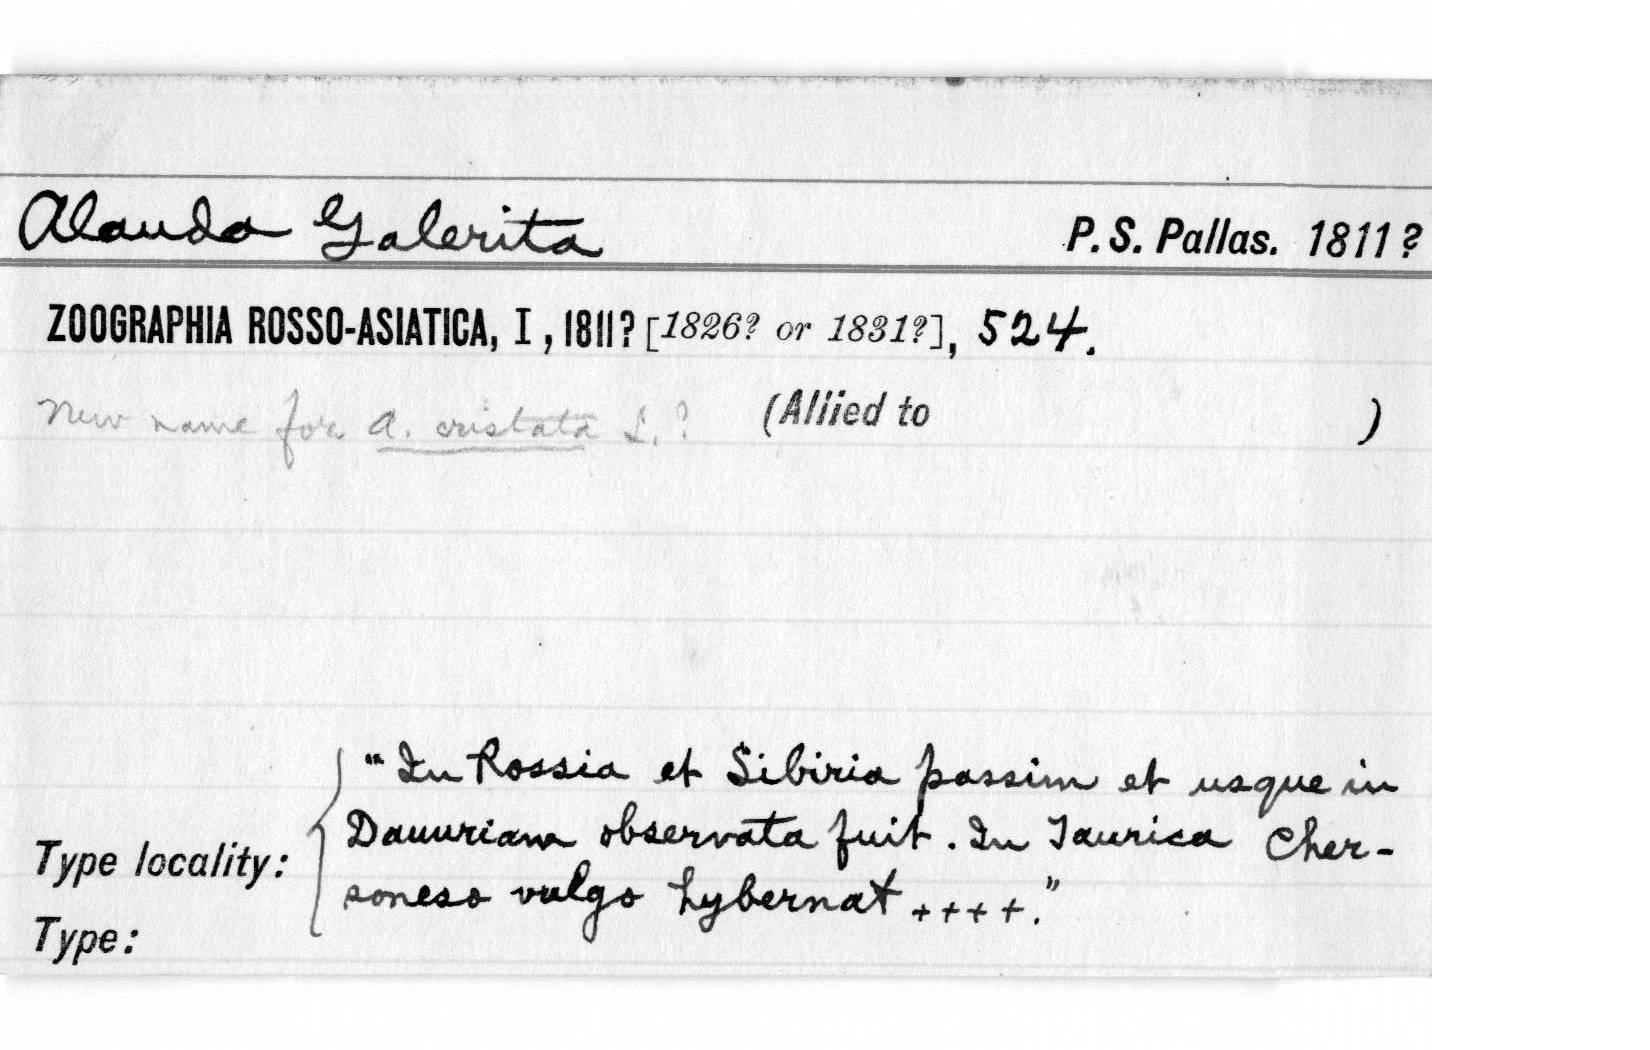 Alauda Galerita P. S. Pallas. 1811?
ZOOGRAPHIA ROSSO-ASIATICA, I, 1811? [1826? or 1831?], 524.
New name for A. cristata L.? (Allied to )
"In Rossia et Sibiria passim et usque in
Dauuriam observata fuit. In Taurica Cher-
Type locality:
soneso vulgo hybernat ++++."
Type: